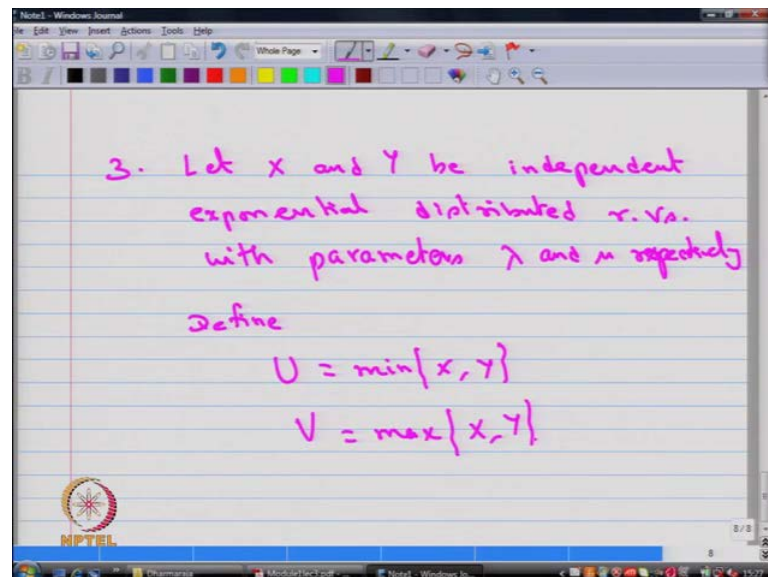 Note1 - Windows Journal
File Edit View Insert Actions Tools Help
Whole Page
B I
3. Let X and Y be independent
exponential distributed r.vs.
with parameters λ and μ respectively
Define
U = min{X, Y}
V = max{X, Y}
NPTEL
8/8
8
Dharmaraja
Module1lec3.pdf - ...
Note1 - Windows Jo...
15:27